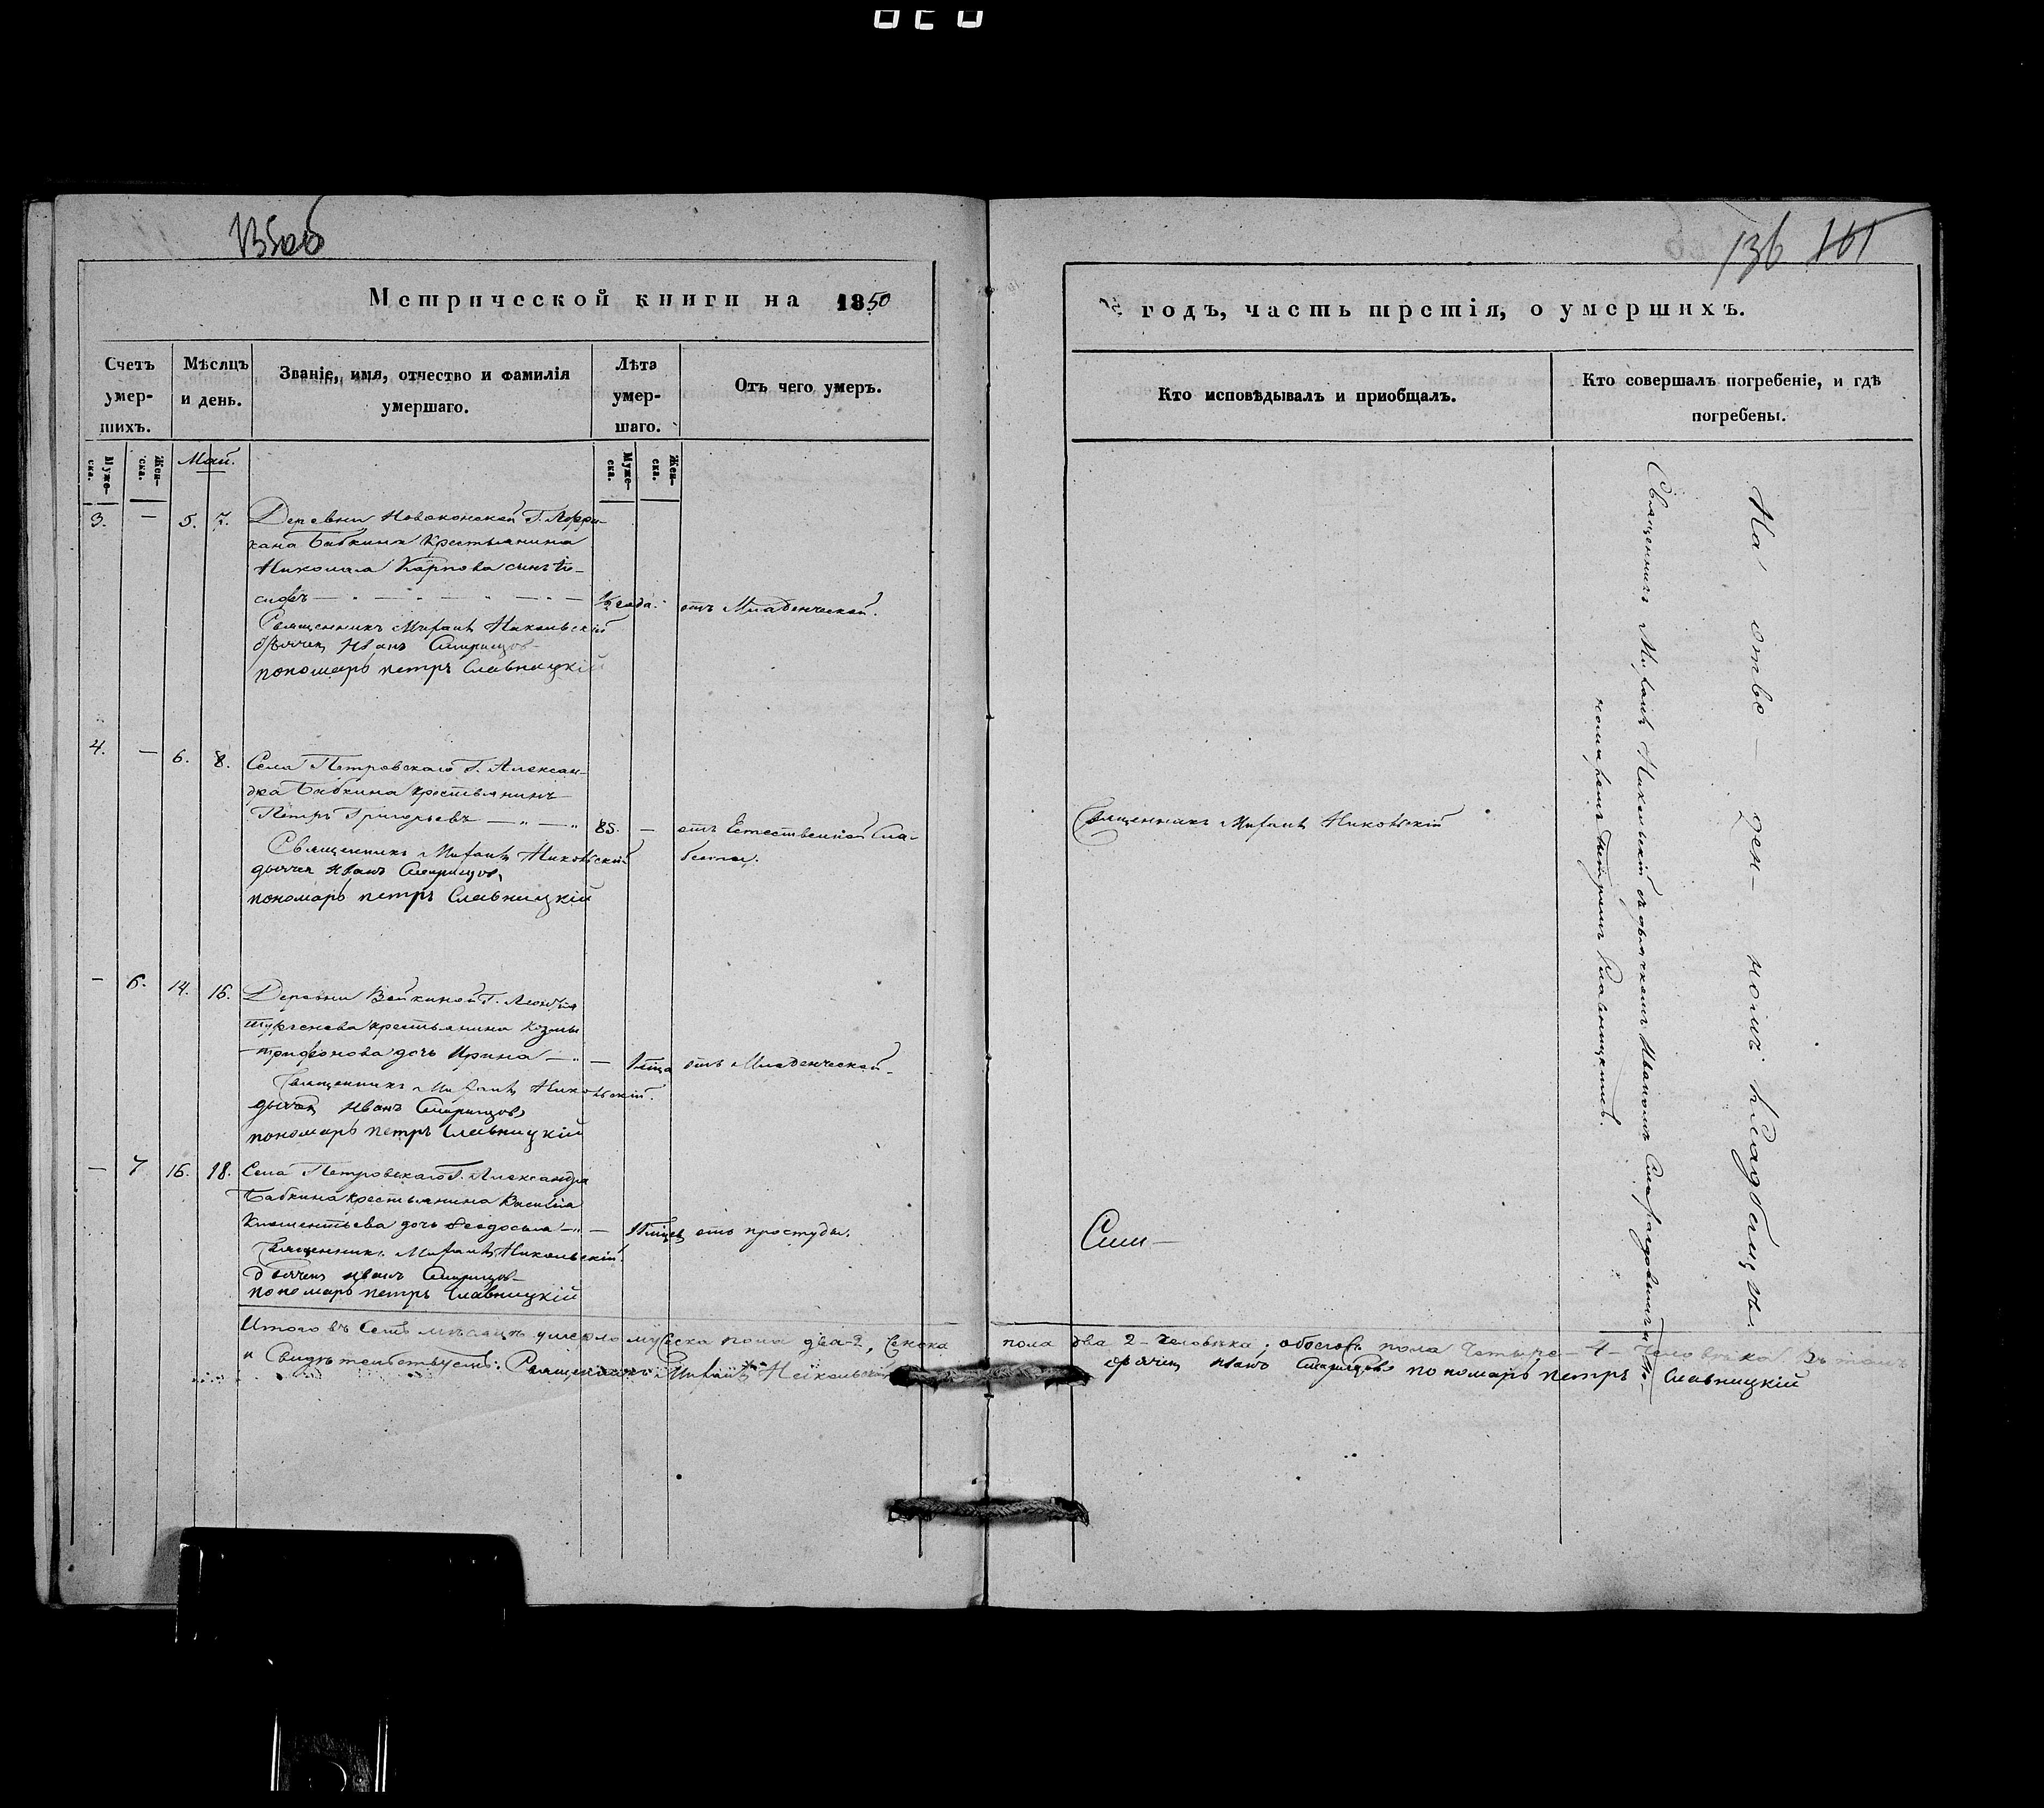 136 161
Метрической книги на 1850
годъ, часть третія, о умершихъ.
Счетъ умер-шихъ.
Мѣсяцъ и день.
Званіе, имя, отчество и фамилія умершаго.
Лѣта умер-шаго.
Отъ чего умеръ.
Кто исповѣдывалъ и приобщалъ.
Кто совершалъ погребеніе, и гдѣ погребены.
Муже-ска.
Жен-ска.
Май.
Муже-ска.
Жен-ска.
3. — 5. 7. Деревни Новоконской Г.
Бабкина крестьянина
Николая Карпова сынъ Іо-
сифъ — 1/2 года. отъ Младенческой.
Священникъ Никольскій
дьячекъ Иванъ
пономарь петръ Славницкій
4. — 6. 8. Села Петровскаго Г. Алексан-
дра Бабкина крестьянинъ
Петръ Григорьевъ — 85. — отъ Естественной Сла-
бости.
Священникъ Никольскій
дьячекъ Иванъ
пономарь петръ Славницкій
Священникъ Никольскій
— 6. 14. 16. Деревни Г.
Тургенева крестьянина Козмы
трифонова дочь Ирина — отъ Младенческой
Священникъ Никольскій.
дьячекъ Иванъ
пономарь петръ Славницкій
— 7 16. 18. Села Петровскаго Г. Александра
Бабкина крестьянина Василія
Климентьева дочь Феодосья — отъ простуды.
Священникъ Никольскій.
дьячекъ Иванъ
пономарь петръ Славницкій
Священникъ Никольскій съ дьячкомъ Иваномъ и по-
номаремъ Петромъ Славницкимъ.
На отве — ден — номъ кладбищѣ
Итого въ семъ мѣсяцѣ умерло мужеска пола два-2, женска пола два 2 - человѣка; обоего пола четыре - 4 - человѣка. Въ томъ
и свидѣтельствуемъ: Священникъ Никольскій дьячекъ Иванъ пономарь петръ Славницкій